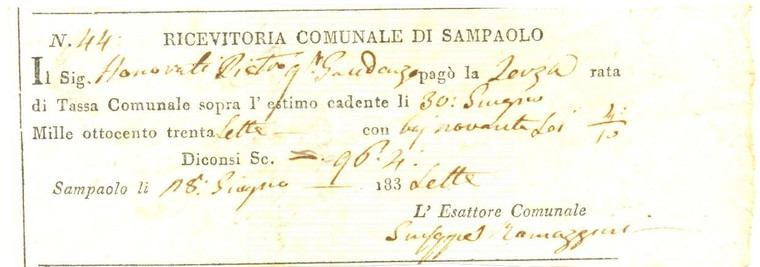 N. 44: RICEVITORIA COMUNALE DI SAMPAOLO
Il Sig. Honorati Pietro qm Gaudenzo pagò la Terza rata
di Tassa Comunale sopra l'estimo cadente li 30: Giugno
Mille ottocento trenta Sette con bj novanta Sei 4/10
Diconsi Sc. = 96:4:
Sampaolo li 18: Giugno 183 Sette
L' Esattore Comunale
Giuseppe Ramazzini